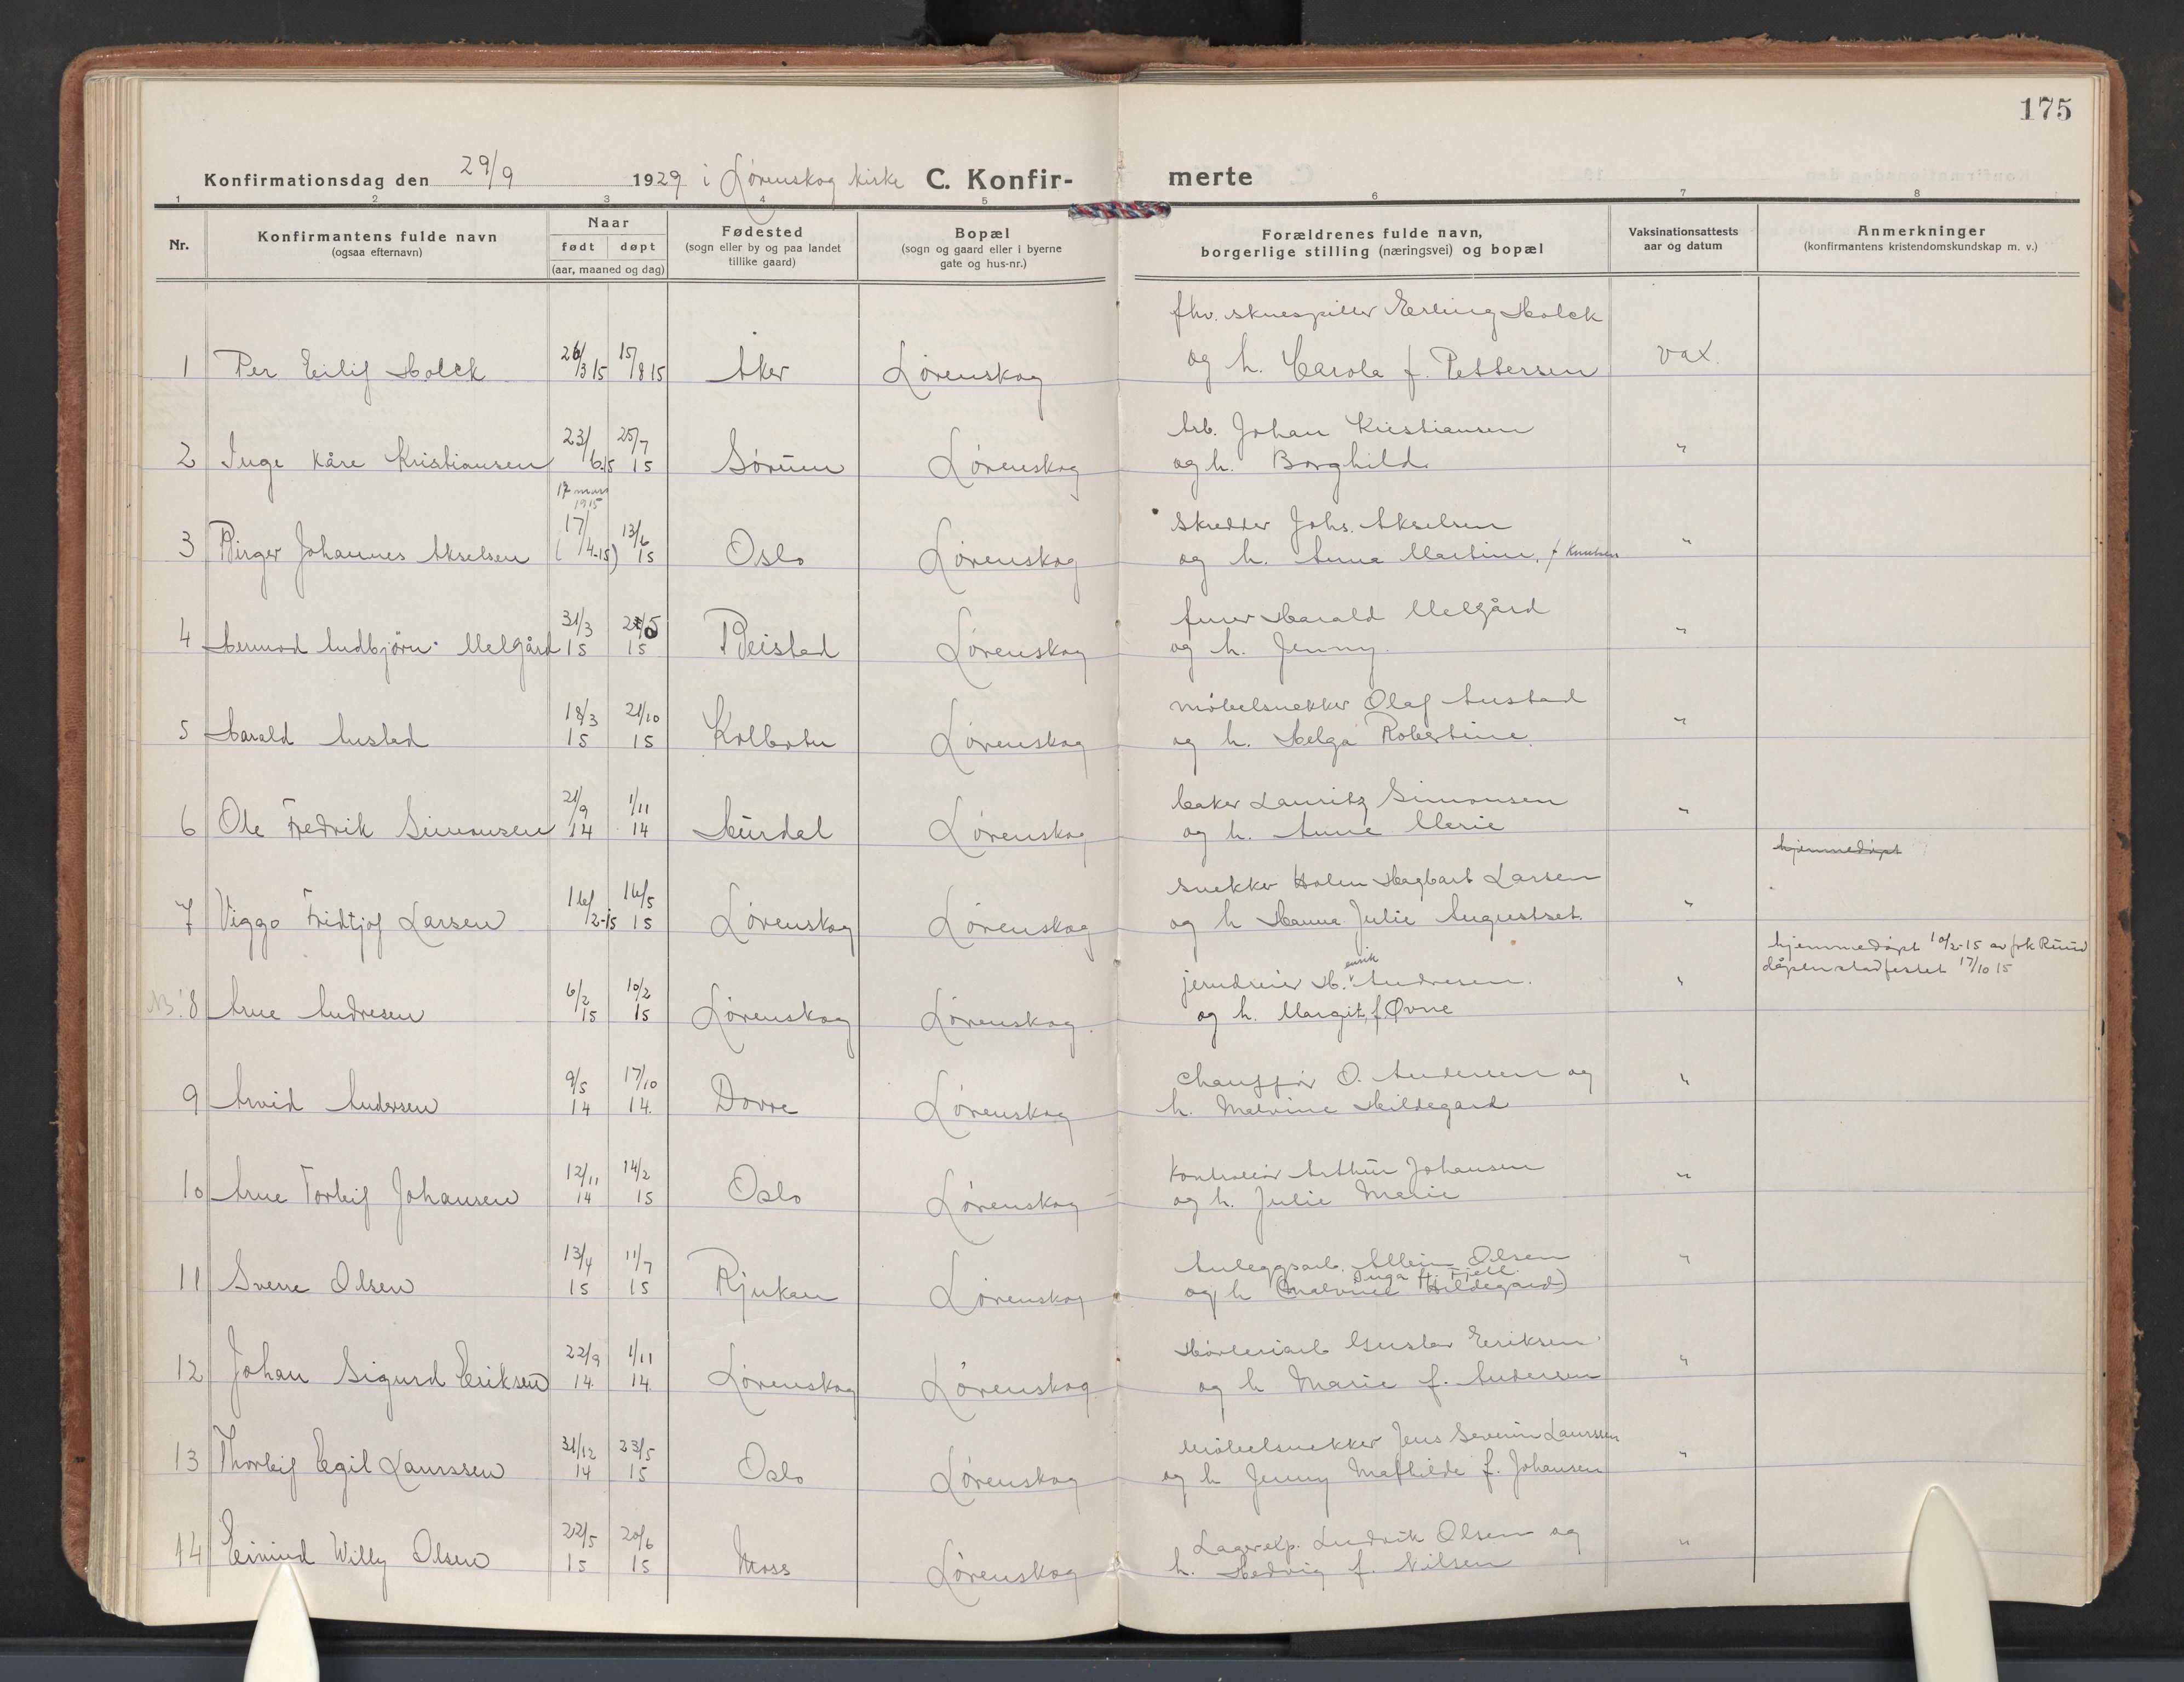 175
Konfirmationsdag den 29/9 1929 i Lørenskog kirke C. Konfir- merte
1 2 3 4 5 6 7 8
Nr.
Konfirmantens fulde navn
(ogsaa efternavn)
Naar
født døpt
(aar, maaned og dag)
Fødested
(sogn eller by og paa landet
tillike gaard)
Bopæl
(sogn og gaard eller i byerne
gate og hus-nr.)
Forældrenes fulde navn,
borgerlige stilling (næringsvei) og bopæl
Vaksinationsattests
aar og datum
Anmerkninger
(konfirmantens kristendomskundskap m. v.)
fhv. skuespiller Erling Holck
1 Per Eilif Holck 26/3 15 15/8 15 Aker Lørenskog og h. Carola f. Pettersen vax.
Arb. Johan Kristiansen
2 Inge Kåre Kristiansen 23/6.15 25/7 15 Sørum Lørenskog og h. Borghild. "
17 mars
1915
Skredder Johs. Akselsen
3 Birger Johannes Akselsen (17/4-15) 13/6 15 Oslo Lørenskog og h. Anna Martine, f Knutsen "
Harald Melgård
4 Audbjørn Melgård 31/3 15 15 Beistad Lørenskog og h. Jenny. "
møbelsnekker Olaf Austad
5 Harald Austad 18/3 15 21/10 15 Kolbotn Lørenskog og h. Helga Robertine. "
baker Lauritz Simonsen
6 Ole Fredrik Simonsen 21/9 14 1/11 14 Aurdal Lørenskog og h. Anne Marie "
hjemmedøpt
snekker Holm Hagbart Larsen
7 Viggo Fridtjof Larsen 16/2-15 16/5 15 Lørenskog Lørenskog og h Hanna Julie Augustset. "
hjemmedøpt 10/2-15 av frk Ruud
dåpen stadfestet 17/10 15
jerndreier H.enrik Andresen.
NB! 8 Arne Andresen 6/2 15 10/2 15 Lørenskog Lørenskog. og h. Margit, f. Øvne "
chauffør O. Andersen og
9 Arvid Andersen 9/5 14 17/10 14. Dovre Lørenskog h. Malvine Hildegard "
Kontrollør Arthur Johansen
10 Arne Torleif Johansen 12/11 14 14/2 15 Oslo Lørenskog og h. Julie Marie "
Anleggsarb. Albin Olsen
Inga H. Fjell.
11 Sverre Olsen 13/4 15 11/7 15 Rjukan Lørenskog og h (Malvine Hildegard) "
Gustav Eriksen
12 Johan Sigurd Eriksen 22/9 14. 1/11 14 Lørenskog Lørenskog. og h Marie f. Andersen "
Møbelsnekker Jens Severin Laurssen
13 Thorleif Egil Laurssen 31/12 14 23/5 15 Oslo Lørenskog og h Jenny Mathilde f. Johansen "
Lagereksp. Ludvik Olsen og
14 Eivind Willy Olsen 22/5 15 20/6 15 Moss Lørenskog h. Hedvig f. Nilsen "